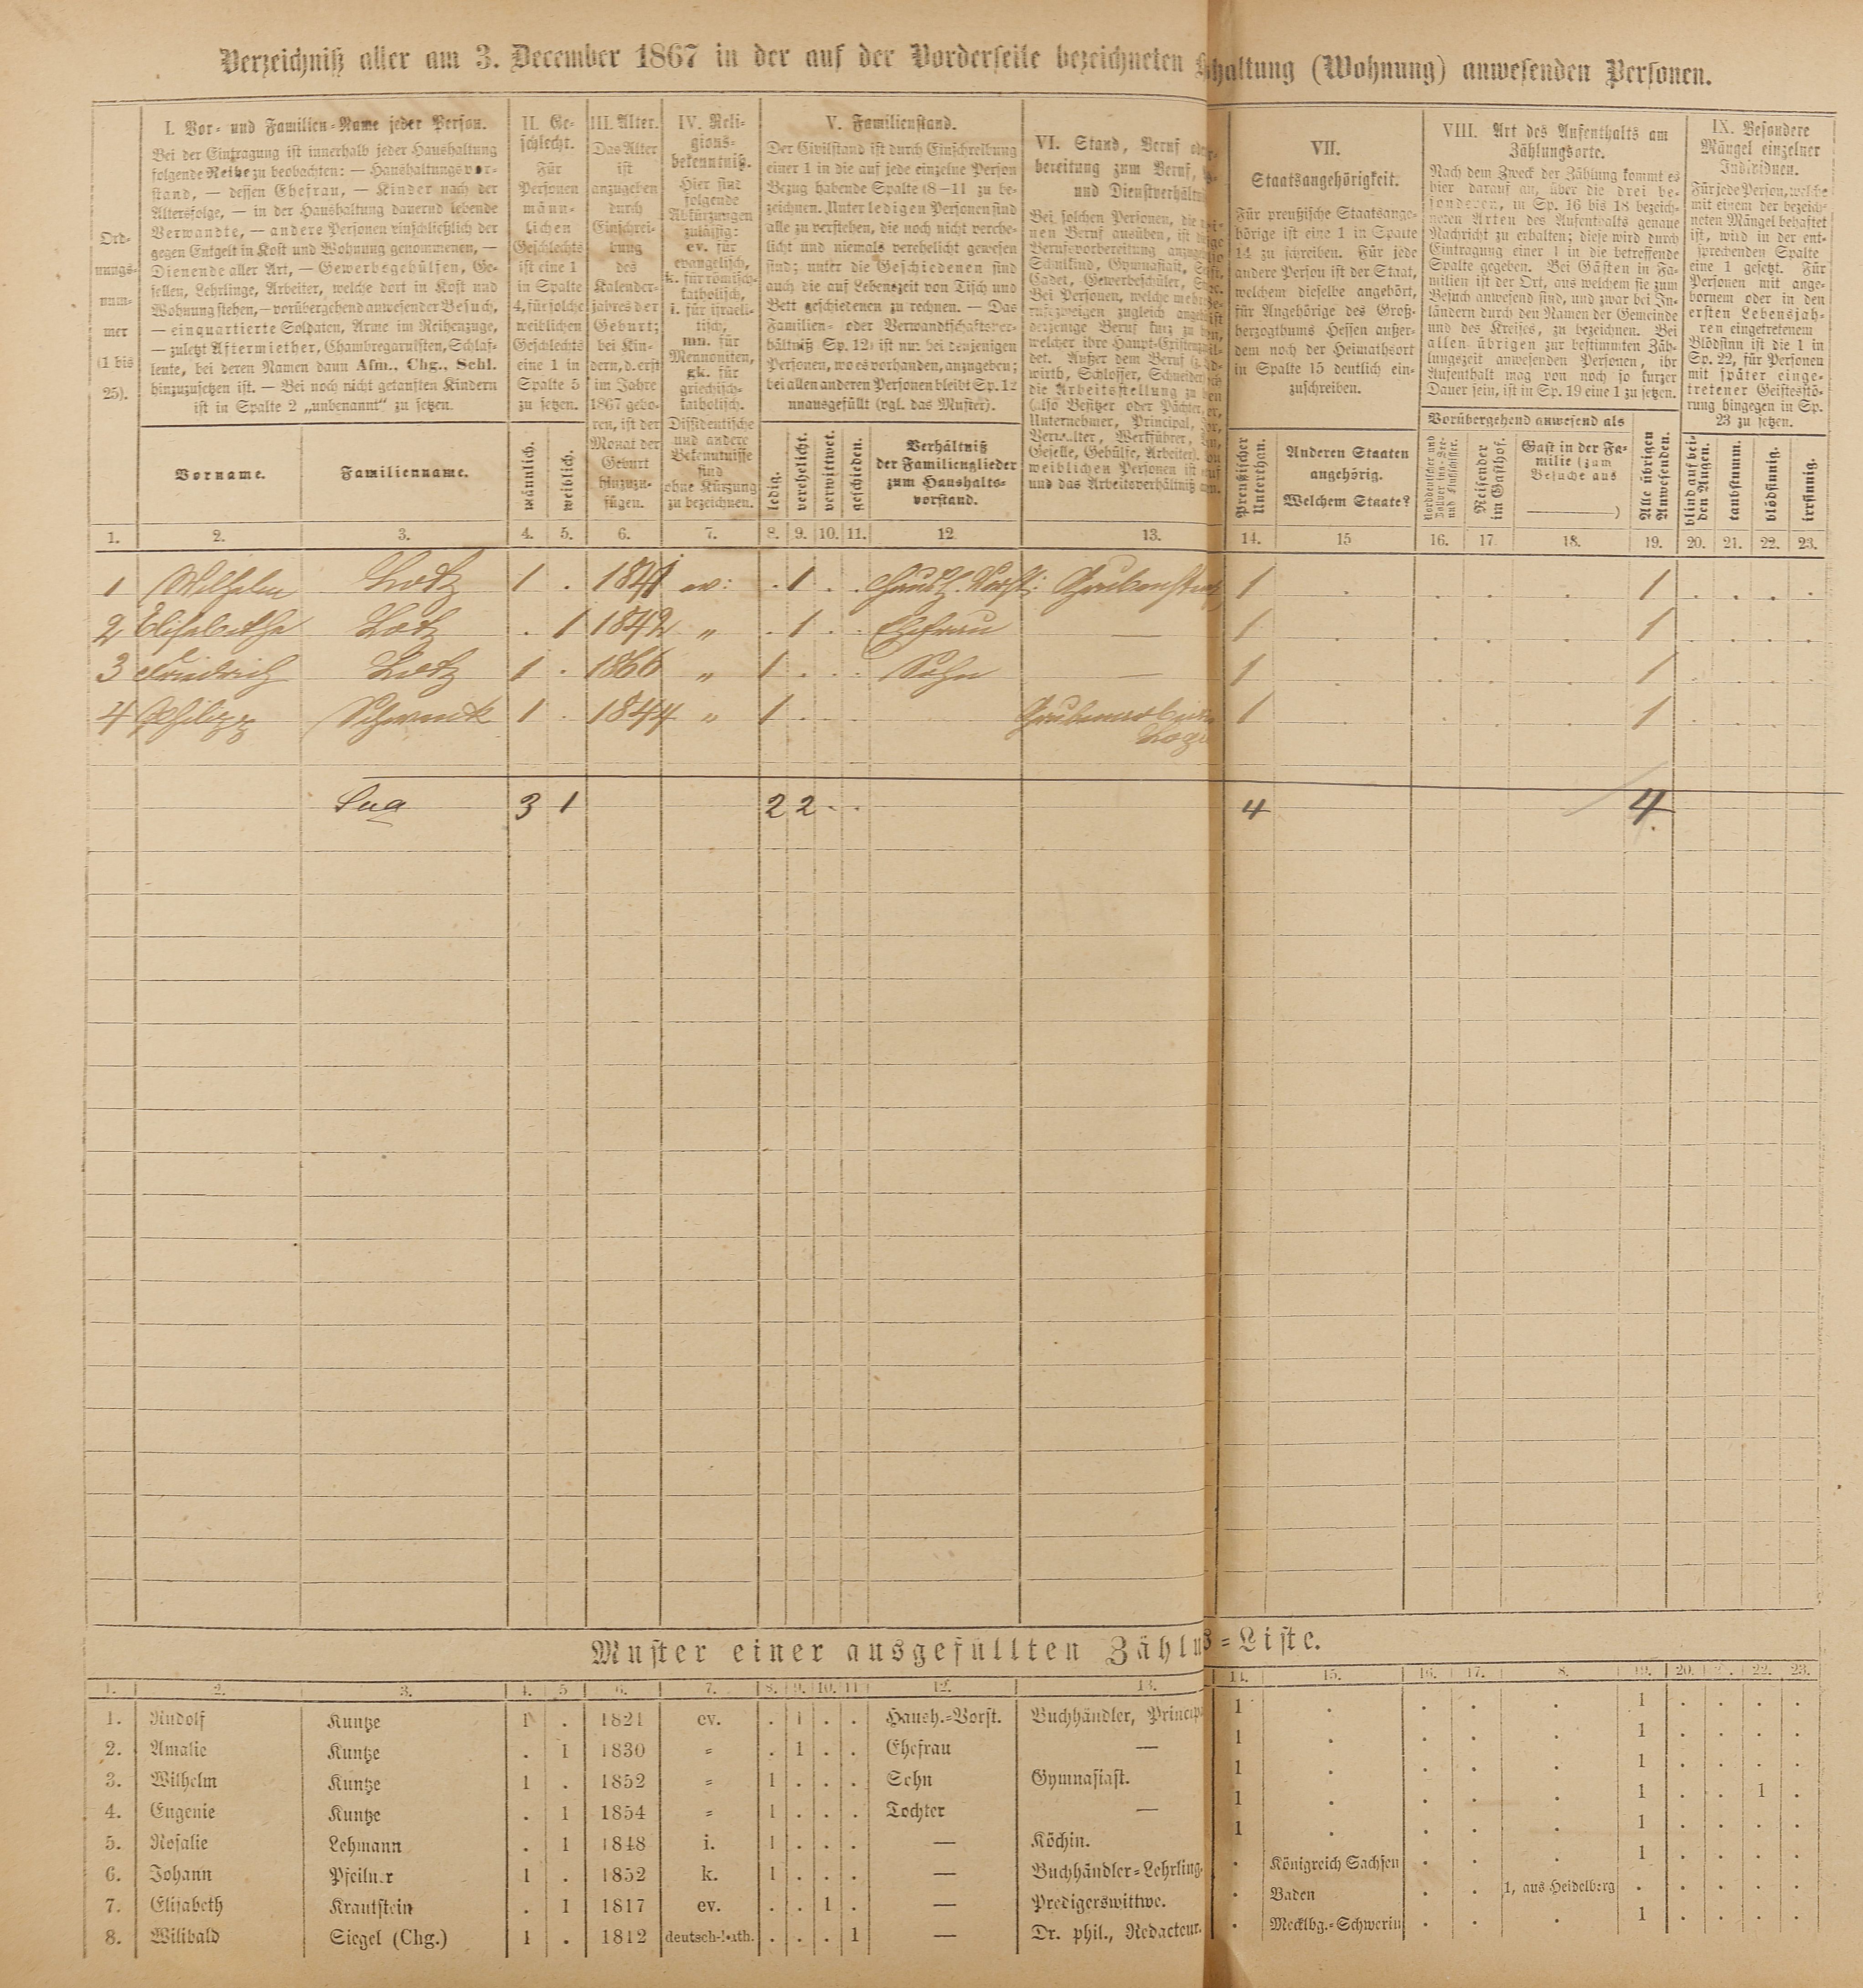 Verzeichniß aller am 3. December 1867 in der auf der Vorderseite bezeichneten haltung (Wohnung) anwesenden Personen.
Ord-
nungs-
num-
mer
(1 bis
25).
I. Vor- und Familien-Name jeder Person.
Bei der Eintragung ist innerhalb jeder Haushaltung
folgende Reihe zu beobachten: — Haushaltungsvor-
stand, — dessen Ehefrau, — Kinder nach der
Altersfolge, — in der Haushaltung dauernd lebende
Verwandte, — andere Personen einschließlich der
gegen Entgelt in Kost und Wohnung genommenen, —
Dienende aller Art, — Gewerbsgehülfen, Ge-
sellen, Lehrlinge, Arbeiter, welche dort in Kost und
Wohnung stehen, — vorübergehend anwesender Besuch,
— einquartierte Soldaten, Arme im Reihenzuge,
— zuletzt Aftermiether, Chambregarnisten, Schlaf-
leute, bei deren Namen dann Afm., Chg., Schl.
hinzuzusetzen ist. — Bei noch nicht getauften Kindern
ist in Spalte 2 „unbenannt“ zu setzen.
Vorname.
Familienname.
II. Ge-
schlecht.
Für
Personen
männ-
lichen
Geschlechts
ist eine 1
in Spalte
4, für solche
weiblichen
Geschlechts
eine 1 in
Spalte 5
zu setzen.
männlich.
weiblich.
III. Alter.
Das Alter
ist
anzugeben
durch
Einschrei-
bung
des
Kalender-
jahres der
Geburt;
bei Kin-
dern, d. erst
im Jahre
1867 gebo-
ren, ist der
Monat der
Geburt
hinzuzu-
fügen.
IV. Reli-
gions-
bekenntniß.
Hier sind
folgende
Abkürzungen
zulässig:
ev. für
evangelisch,
k. für römisch-
katholisch,
i. für israeli-
tisch,
mn. für
Mennoniten,
gk. für
griechisch-
katholisch.
Dissidentische
und andere
Bekenntnisse
sind
ohne Kürzung
zu bezeichnen.
V. Familienstand.
Der Civilstand ist durch Einschreibung
einer 1 in die auf jede einzelne Person
Bezug habende Spalte (8—11 zu be-
zeichnen. Unter ledigen Personen sind
alle zu verstehen, die noch nicht verehe-
licht und niemals verehelicht gewesen
sind; unter die Geschiedenen sind
auch die auf Lebenszeit von Tisch und
Bett geschiedenen zu rechnen. — Das
Familien- oder Verwandtschaftsver-
hältniß Sp. 12) ist nur bei denjenigen
Personen, wo es vorhanden, anzugeben;
bei allen anderen Personen bleibt Sp. 12
unausgefüllt (vgl. das Muster).
ledig.
verehelicht.
verwittwet.
geschieden.
Verhältniß
der Familienglieder
zum Haushalts-
vorstand.
VI. Stand, Beruf
bereitung zum Beruf,
und Dienstverhältn
Bei solchen Personen, die
nen Beruf ausüben, ist
Berufsvorbereitung
Schulkind, Gymnasiast,
Cadet, Gewerbeschüler,
Bei Personen, welche
rufszweigen zugleich
derjenige Beruf kurz zu
welcher ihre Haupt-
det. Außer dem Beruf
wirth, Schlosser, Schneider
die Arbeitsstellung zu
(also Besitzer oder Pächter,
Unternehmer, Principal,
Verwalter, Werkführer,
Geselle, Gehülfe, Arbeiter).
weiblichen Personen ist
und das Arbeitsverhältniß
VII.
Staatsangehörigkeit.
Für preußische Staatsange-
hörige ist eine 1 in Spalte
14 zu schreiben. Für jede
andere Person ist der Staat,
welchem dieselbe angehört,
für Angehörige des Groß-
herzogthums Hessen außer-
dem noch der Heimathsort
in Spalte 15 deutlich ein-
zuschreiben.
Preußischer
Unterthan.
Anderen Staaten
angehörig.
Welchem Staate?
VIII. Art des Aufenthalts am
Zählungsorte.
Nach dem Zweck der Zählung kommt es
hier darauf an, über die drei be-
sonderen, in Sp. 16 bis 18 bezeich-
neten Arten des Aufenthalts genaue
Nachricht zu erhalten; diese wird durch
Eintragung einer 1 in die betreffende
Spalte gegeben. Bei Gästen in Fa-
milien ist der Ort, aus welchem sie zum
Besuch anwesend sind, und zwar bei In-
ländern durch den Namen der Gemeinde
und des Kreises, zu bezeichnen. Bei
allen übrigen zur bestimmten Zäh-
lungszeit anwesenden Personen, ihr
Aufenthalt mag von noch so kurzer
Dauer sein, ist in Sp. 19 eine 1 zu setzen.
Vorübergehend anwesend als
Reisender
im Gasthof.
Gast in der Fa-
milie (zum
Besuche aus
)
Alle übrigen
Anwesenden.
IX. Besondere
Mängel einzelner
Individuen.
Für jede Person, welche
mit einem der bezeich-
neten Mängel behaftet
ist, wird in der ent-
sprechenden Spalte
eine 1 gesetzt. Für
Personen mit ange-
bornem oder in den
ersten Lebensjah-
ren eingetretenem
Blödsinn ist die 1 in
Sp. 22, für Personen
mit später einge-
tretener Geistesstö-
rung hingegen in Sp.
23 zu setzen.
blind auf bei-
den Augen.
taubstumm.
blödsinnig.
irrsinnig.
1. 2. 3. 4. 5. 6. 7. 8. 9. 10. 11. 12 13. 14. 15 16. 17 18. 19. 20. 21. 22. 23.
1 Wilhelm Lotz 1 . 1841 ev: . 1 . . Haush. Vorst: 1 . . . . 1 . . . .
2 Elisabetha Lotz . 1 1842 „ . 1 . . Ehefrau — 1 . . . . 1 . . . .
3 Friedrich Lotz 1 . 1866 „ 1 . . . Sohn — 1 . . . . 1 . . . .
4 Philipp Schwenk 1 . 1844 „ 1 . . . 1 . . . . 1 . . . .
3 1 2 2 . . 4 4.
Muster einer ausgefüllten Zählu s-Liste.
1. 2. 3. 4. 5 6. 7. 8. 9. 10. 11 12. 13. 14. 15. 16. 17. 8. 19. 20. 22. 23.
1. Rudolf Kuntze 1 . 1821 ev. . 1 . . Haush.-Vorst. Buchhändler, Princip 1 . . . . 1 . . . .
2. Amalie Kuntze . 1 1830 = . 1 . . Ehefrau — 1 . . . . 1 . . . .
3. Wilhelm Kuntze 1 . 1852 = 1 . . . Sohn Gymnasiast. 1 . . . . 1 . . . .
4. Eugenie Kuntze . 1 1854 = 1 . . . Tochter — 1 . . . . 1 . . 1 .
5. Rosalie Lehmann . 1 1848 i. 1 . . . — Köchin. 1 . . . . 1 . . . .
6. Johann Pfeilner 1 . 1852 k. 1 . . . — Buchhändler-Lehrling. . Königreich Sachsen . . . 1 . . . .
7. Elisabeth Krautstein . 1 1817 ev. . . 1 . — Predigerswittwe. . Baden . . 1, aus Heidelberg . . . . .
8. Wilibald Siegel (Chg.) 1 . 1812 deutsch-kath. . . . 1 — Dr. phil., Redacteur. . Mecklbg.-Schwerin . . . 1 . . . .